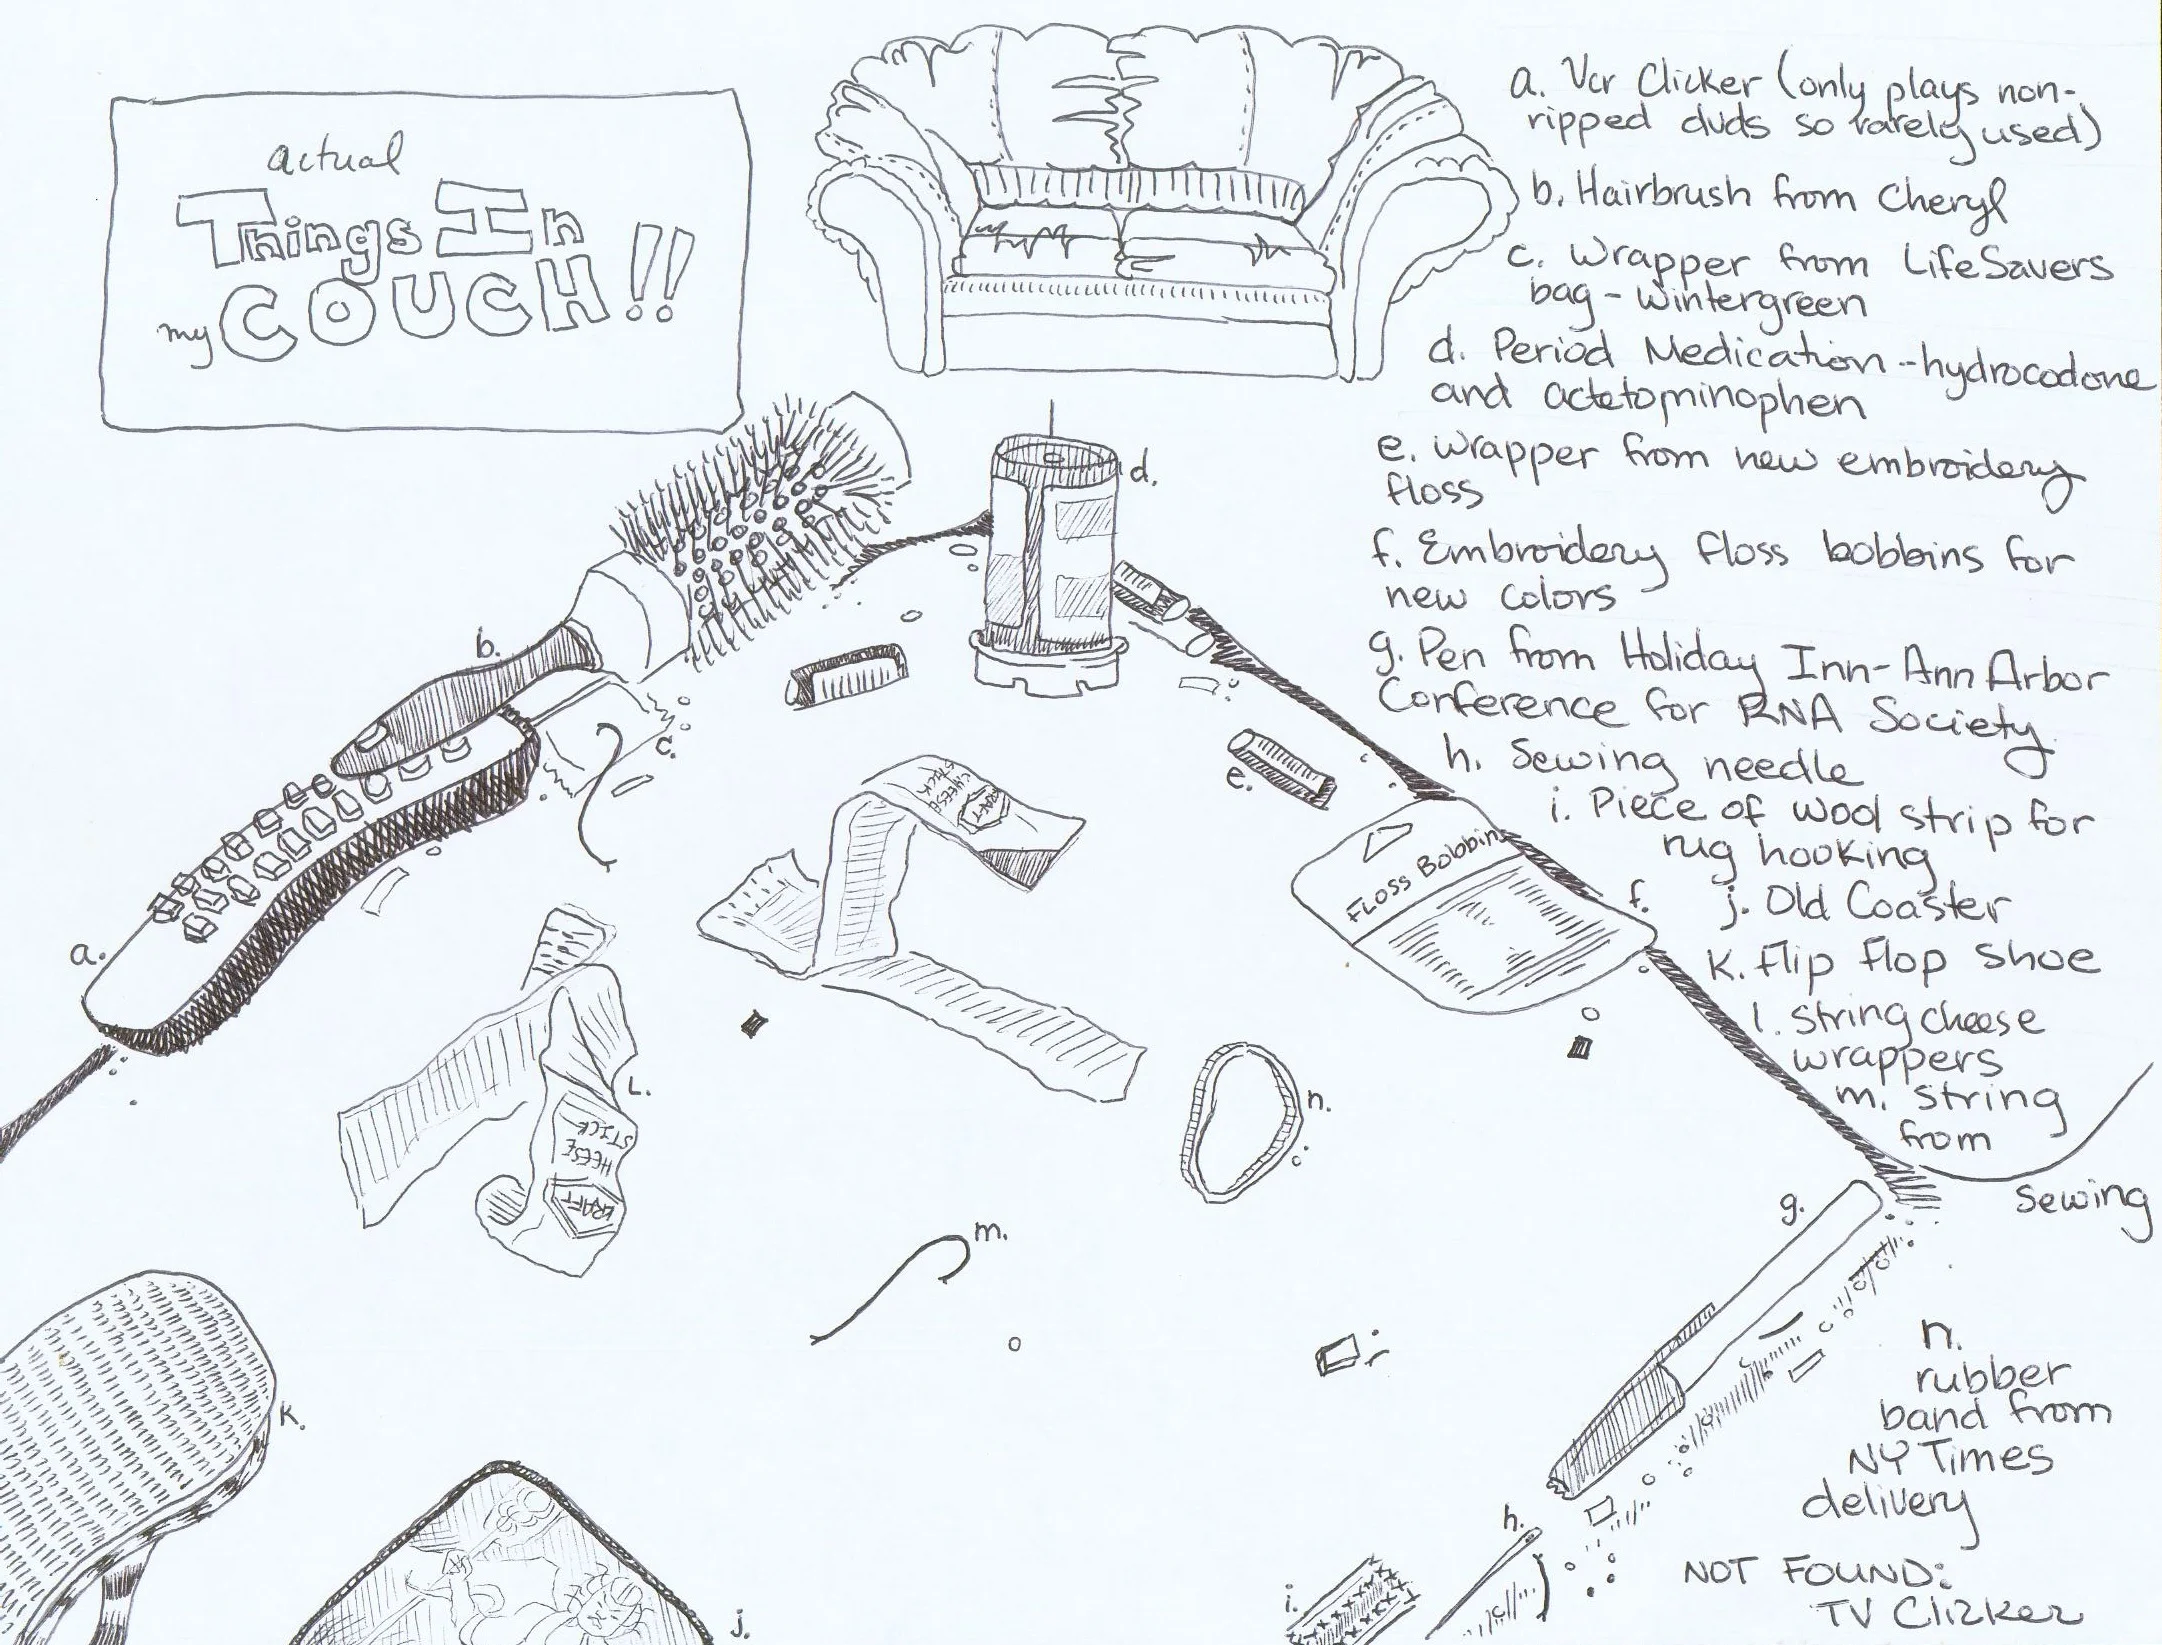 actual
Things In
my COUCH!!
a. Vcr Clicker (only plays non-
ripped dvds so rarely used)
b. Hairbrush from Cheryl
c. Wrapper from LifeSavers
bag - Wintergreen
d. Period Medication -- hydrocodone
and actetominophen
e. wrapper from new embroidery
floss
f. Embroidery floss bobbins for
new colors
g. Pen from Holiday Inn - Ann Arbor
Conference for RNA Society
h. Sewing needle
i. Piece of wool strip for
rug hooking
j. Old Coaster
k. Flip Flop shoe
l. String cheese
wrappers
m. string
from
Sewing
n.
rubber
band from
NY Times
delivery
NOT FOUND:
TV Clicker
d.
b.
c.
CHEESE
STICK
KRAFT
e.
Floss Bobbins
f.
a.
L.
STICK
HEESE
KRAFT
n.
g.
m.
k.
h.
i.
j.